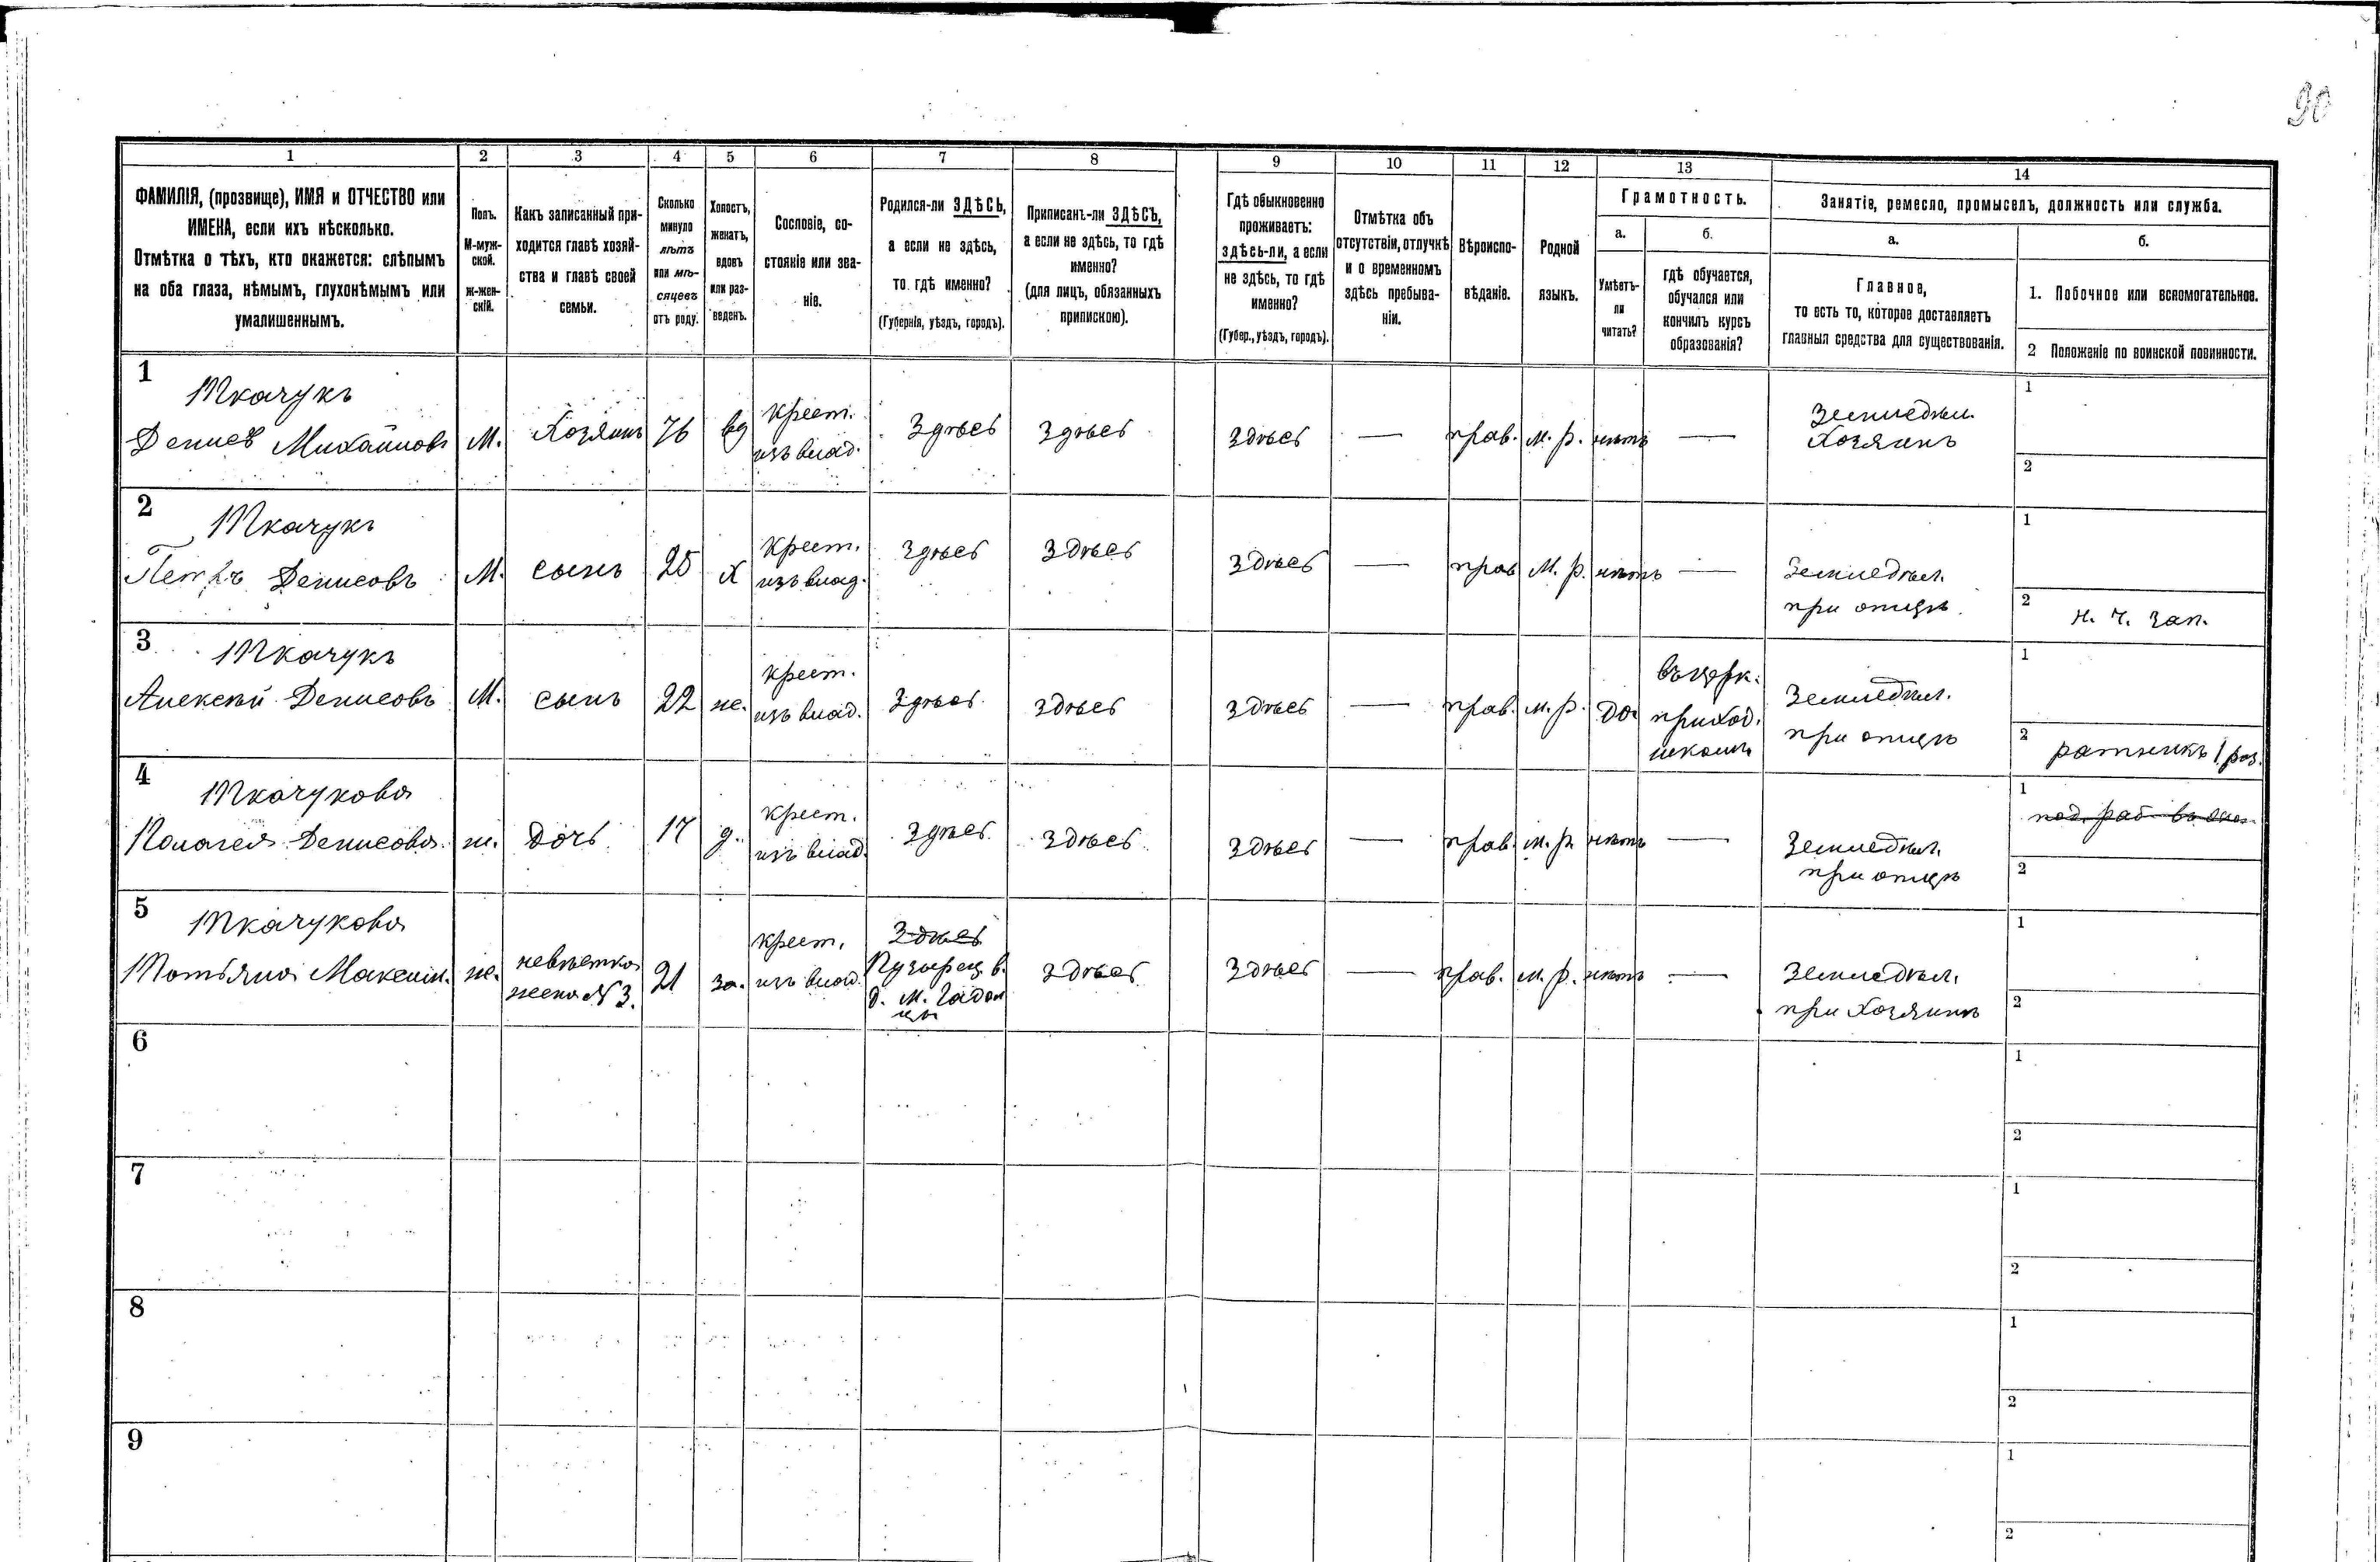 90
1 2 3 4 5 6 7 8 9 10 11 12 13 14
ФАМИЛІЯ, (прозвище), ИМЯ и ОТЧЕСТВО или
ИМЕНА, если ихъ нѣсколько.
Отмѣтка о тѣхъ, кто окажется: слѣпымъ
на оба глаза, нѣмымъ, глухонѣмымъ или
умалишеннымъ.
Полъ.
М-муж-
ской.
ж-жен-
скій.
Какъ записанный при-
ходится главѣ хозяй-
ства и главѣ своей
семьи.
Сколько
минуло
лѣтъ
или мѣ-
сяцевъ
отъ роду.
Холостъ,
женатъ,
вдовъ
или раз-
веденъ.
Сословіе, со-
стояніе или зва-
ніе.
Родился-ли ЗДѢСЬ,
а если не здѣсь,
то гдѣ именно?
(Губернія, уѣздъ, городъ).
Приписанъ-ли ЗДѢСЪ,
а если не здѣсь, то гдѣ
именно?
(для лицъ, обязанныхъ
припискою).
Гдѣ обыкновенно
проживаетъ:
здѣсь-ли, а если
не здѣсь, то гдѣ
именно?
(Губер., уѣздъ, городъ).
Отмѣтка объ
отсутствіи, отлучкѣ
и о временномъ
здѣсь пребыва-
ніи.
Вѣроиспо-
вѣданіе.
Родной
языкъ.
Грамотность.
а.
Умѣетъ-
ли
читать?
б.
гдѣ обучается,
обучался или
кончилъ курсъ
образованія?
Занятіе, ремесло, промыселъ, должность или служба.
а.
Главное,
то есть то, которое доставляетъ
главныя средства для существованія.
б.
1. Побочное или вспомогательное.
2 Положеніе по воинской повинности.
1
Ткачукъ
Денисъ Михайловъ М. Хозяинъ 76 вд крест. изъ влад. Здѣсь здѣсь здѣсь — прав. м. р. нѣтъ — Земледѣл. Хозяинъ
1
2
2
Ткачукъ
Петръ Денисовъ М. сынъ 25 х крест. изъ влад. здѣсь здѣсь здѣсь — прав м. р. нѣтъ — Земледѣл. при отцѣ
1
2 н. ч. зап.
3
Ткачукъ
Алексѣй Денисовъ М. сынъ 22 же. крест. изъ влад. здѣсь здѣсь здѣсь — прав. м. р. да въ церк. приход. школѣ Земледѣл. при отцѣ
1
2 ратникъ 1 раз.
4
Ткачукова
Полагея Денисова ж. дочь 17 д. крест. изъ влад. здѣсь здѣсь здѣсь — прав. м. р. нѣтъ — Земледѣл. при отцѣ
1
2
5
Ткачукова
Татьяна Максим. же. невѣстка жена №3. 21 за. крест. изъ влад. Здѣсь д. м. здѣсь здѣсь — прав. м. р. нѣтъ — Земледѣл. при Хозяинѣ
1
2
6
1
2
7
1
2
8
1
2
9
1
2